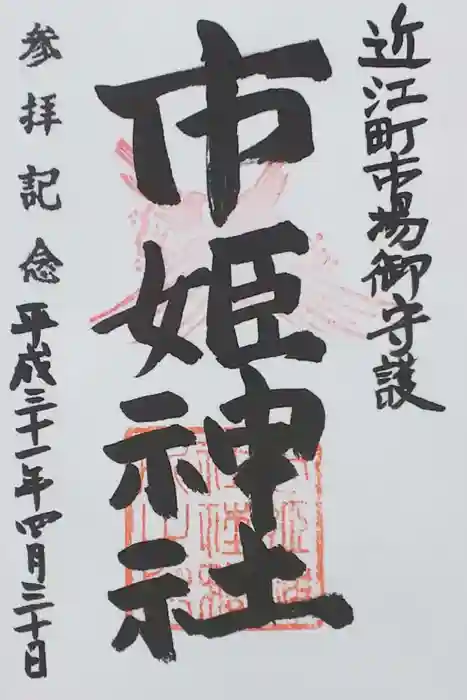 近江町市場御守護
市姫神社
参拝記念
平成三十一年四月三十日